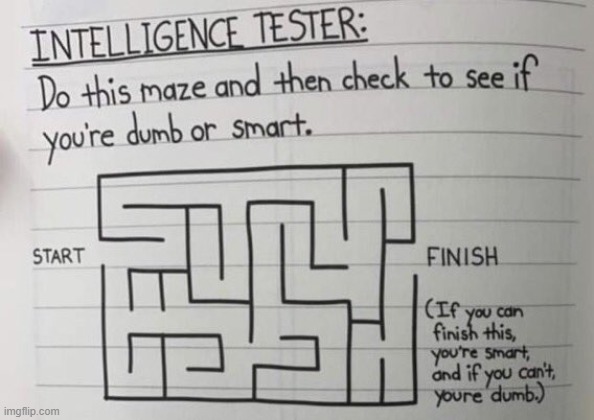 INTELLIGENCE TESTER:
Do this maze and then check to see if
you're dumb or smart.
START
FINISH
(If you can
finish this,
you're smart,
and if you can't,
youre dumb.)
imgflip.com